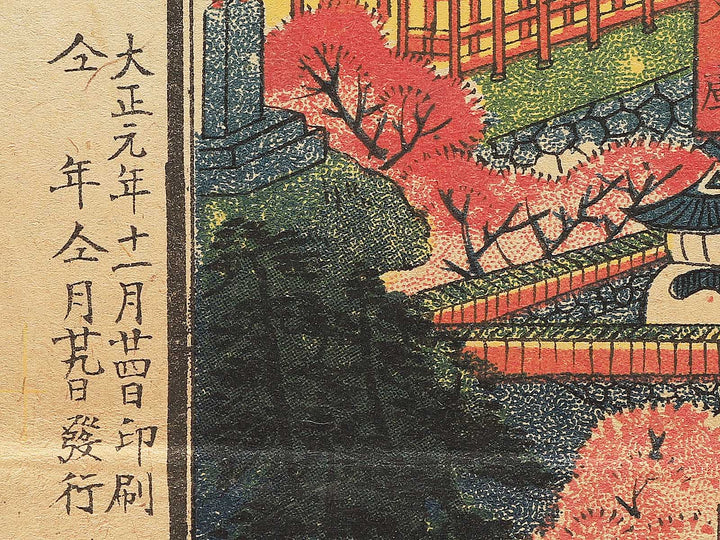 大正元年十一月廿四日印刷
仝年仝月廿九日發行